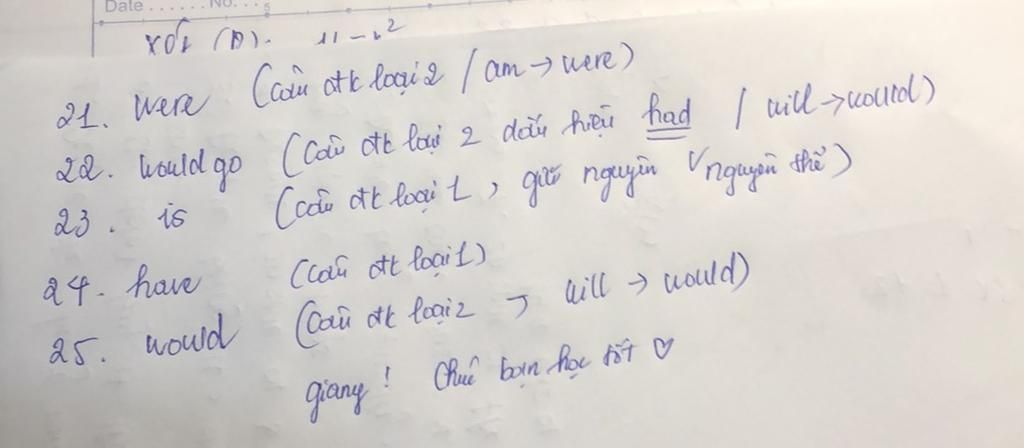 Date ...... No. .. 5
21. were (Câu đk loại 2 / am → were)
22. would go (Câu đk loại 2 dấu hiệu had / will → would)
23. is (câu đk loại 1, giữ nguyên V nguyên thể)
24. have (câu đk loại 1)
25. would (câu đk loại 2 → will → would)
giang! Chúc bạn học tốt ♡